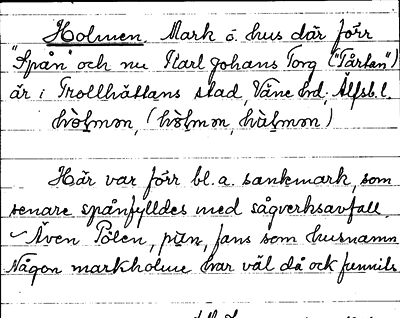 Holmen. Mark o. hus där förr
"Spån" och nu Karl Johans Torg ("Tårtan")
är i Trollhättans stad, Väne hd, Älfsb. l.
Här var förr bl. a. sankmark, som
senare spånfylldes med sågverksavfall.
Även Polen, fans som husnamn
Någon markholme har väl då ock funnits